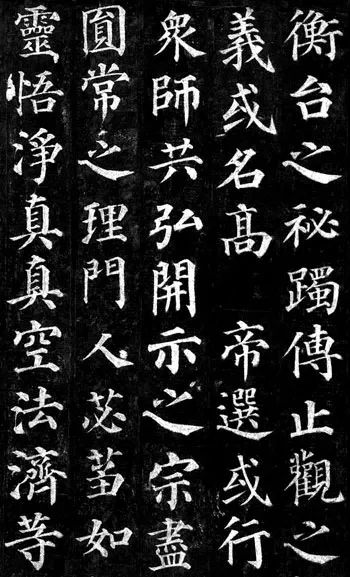 衡台之祕躅傳止觀之
義或名高　帝選或行
衆師共弘開示之宗盡
圓常之理門人苾蒭如
靈悟淨真真空法濟等